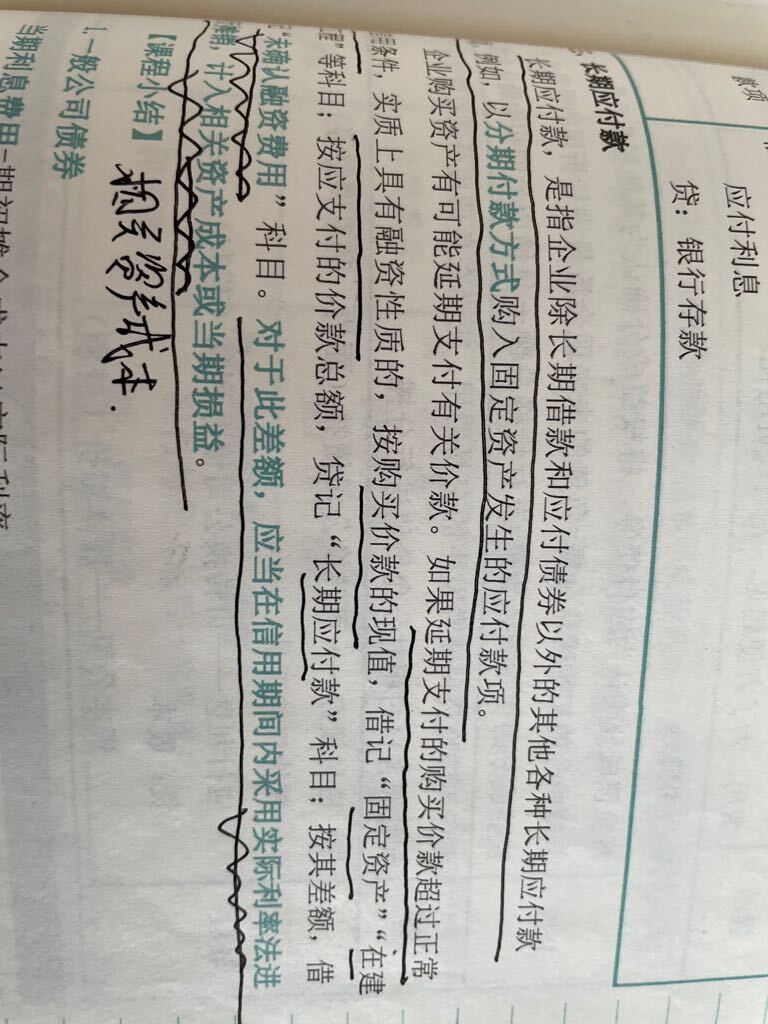 款项
应付利息
贷：银行存款
长期应付款
长期应付款，是指企业除长期借款和应付债券以外的其他各种长期应付款
例如，以分期付款方式购入固定资产发生的应付款项。
企业购买资产有可能延期支付有关价款。如果延期支付的购买价款超过正常
用条件，实质上具有融资性质的，按购买价款的现值，借记“固定资产”“在建
程”等科目；按应支付的价款总额，贷记“长期应付款”科目；按其差额，借
“未确认融资费用”科目。对于此差额，应当在信用期间内采用实际利率法进
计入相关资产成本或当期损益。
相关资产成本.
【课程小结】
1.一般公司债券
当期利息费用=期初摊余成本×实际利率